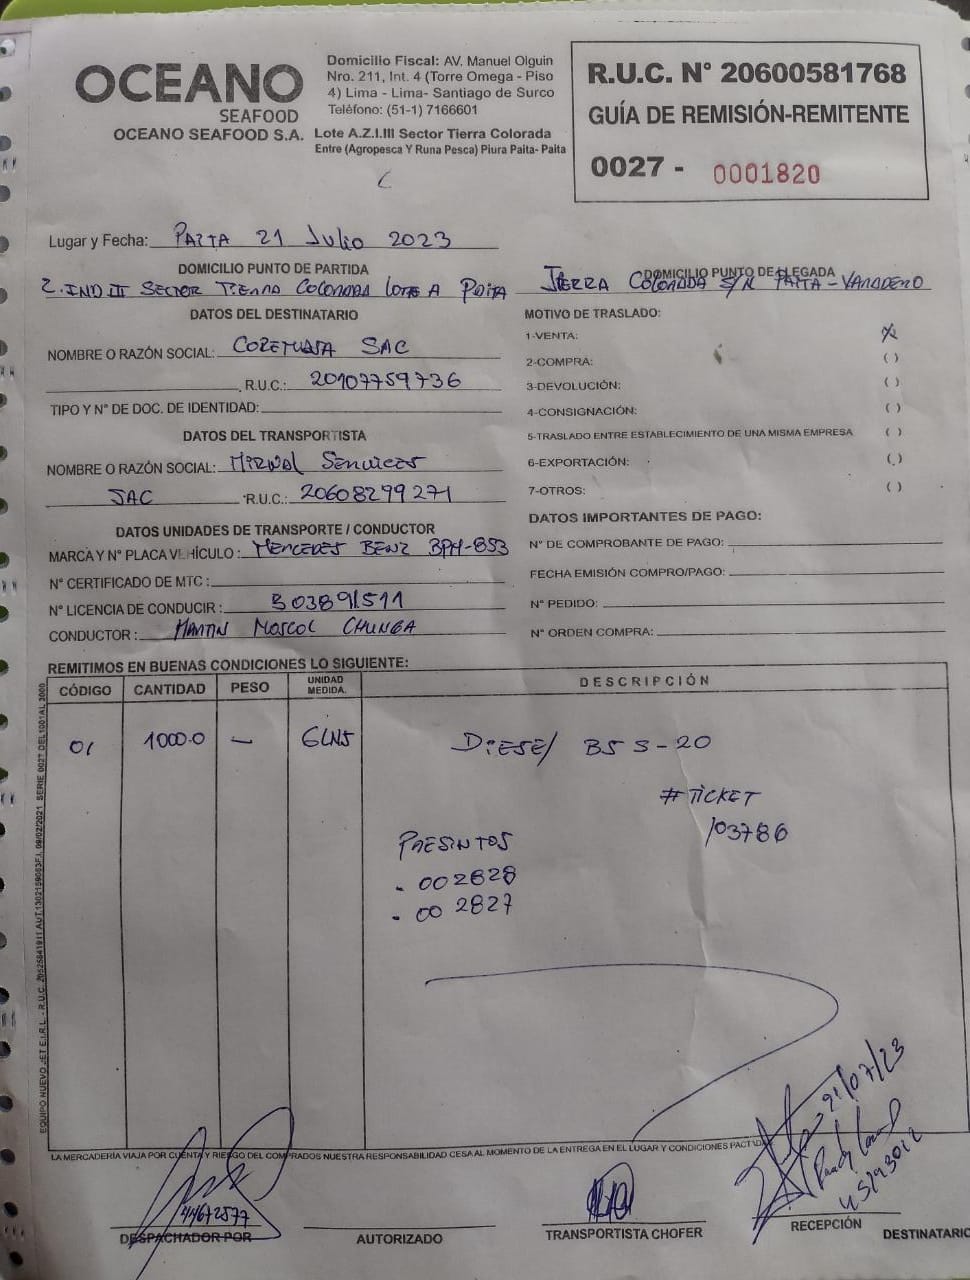 OCEANO
SEAFOOD
OCEANO SEAFOOD S.A.
Domicilio Fiscal: AV. Manuel Olguin
Nro. 211, Int. 4 (Torre Omega - Piso
4) Lima - Lima- Santiago de Surco
Teléfono: (51-1) 7166601
Lote A.Z.I.III Sector Tierra Colorada
Entre (Agropesca Y Runa Pesca) Piura Paita- Paita
R.U.C. N° 20600581768
GUÍA DE REMISIÓN-REMITENTE
0027 - 0001820
Lugar y Fecha: PAITA 21 Julio 2023
DOMICILIO PUNTO DE PARTIDA
Z. IND III SECTOR TIERRA COLORADA LOTE A PAITA
DOMICILIO PUNTO DE LLEGADA
TIERRA COLORADA S/N PAITA - VARADERO
DATOS DEL DESTINATARIO
NOMBRE O RAZÓN SOCIAL: COREMASA SAC
R.U.C.: 20107759736
TIPO Y N° DE DOC. DE IDENTIDAD:
DATOS DEL TRANSPORTISTA
NOMBRE O RAZÓN SOCIAL: MIRWAL SERVICES
SAC R.U.C.: 20608299271
DATOS UNIDADES DE TRANSPORTE / CONDUCTOR
MARCA Y N° PLACA VEHÍCULO : MERCEDES BENZ BPH-853
N° CERTIFICADO DE MTC :
N° LICENCIA DE CONDUCIR : B03891511
CONDUCTOR : MARTIN MOSCOL CHUNGA
MOTIVO DE TRASLADO:
1-VENTA: X
2-COMPRA: ( )
3-DEVOLUCIÓN: ( )
4-CONSIGNACIÓN: ( )
5-TRASLADO ENTRE ESTABLECIMIENTO DE UNA MISMA EMPRESA ( )
6-EXPORTACIÓN: ( )
7-OTROS: ( )
DATOS IMPORTANTES DE PAGO:
N° DE COMPROBANTE DE PAGO:
FECHA EMISIÓN COMPRO/PAGO:
N° PEDIDO:
N° ORDEN COMPRA:
REMITIMOS EN BUENAS CONDICIONES LO SIGUIENTE:
CÓDIGO CANTIDAD PESO UNIDAD MEDIDA. DESCRIPCIÓN
01 1000.0 — GLNS DIESEL B5 S-20
#TICKET
103786
PRESINTOS
- 002828
- 002827
EQUIPO NUEVO JET E.I.R.L. - R.U.C. 20525841911 AUT.1302159083F.I. 09/02/2021 SERIE 0027 DEL 1001 AL 2000
LA MERCADERÍA VIAJA POR CUENTA Y RIESGO DEL COMPRADOS NUESTRA RESPONSABILIDAD CESA AL MOMENTO DE LA ENTREGA EN EL LUGAR Y CONDICIONES PACTADAS
44672577
21/07/23
DESPACHADOR POR
AUTORIZADO
TRANSPORTISTA CHOFER
RECEPCIÓN
DESTINATARIO